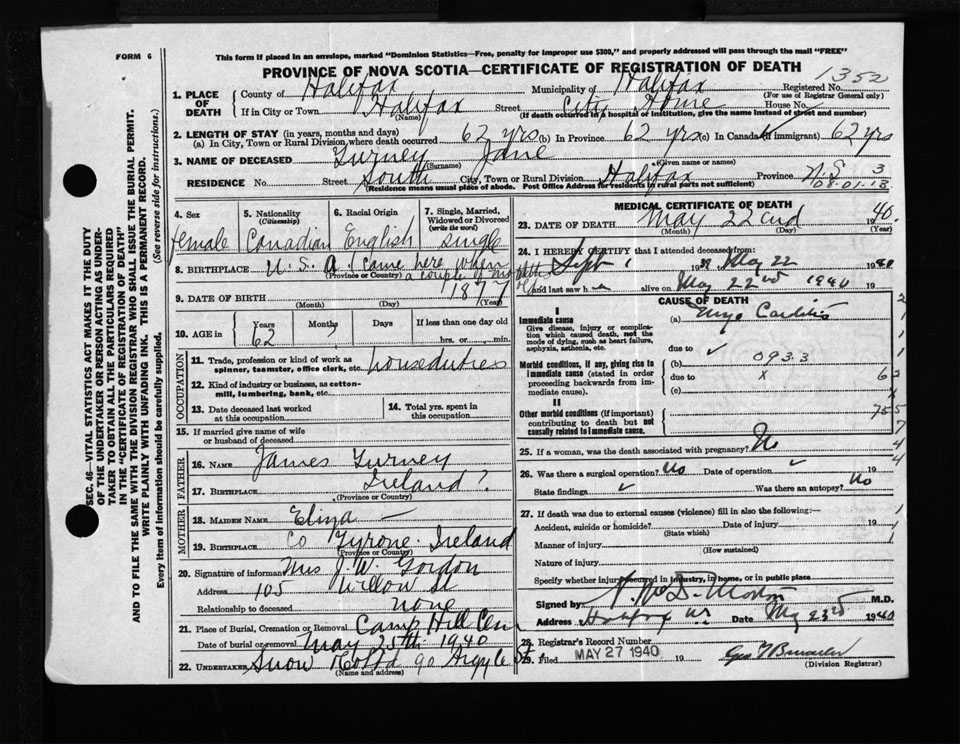 FORM 6
This form if placed in an envelope, marked "Dominion Statistics—Free, penalty for improper use $300," and properly addressed will pass through the mail "FREE"
PROVINCE OF NOVA SCOTIA—CERTIFICATE OF REGISTRATION OF DEATH
1352
1. PLACE OF DEATH
County of Halifax Municipality of Halifax Registered No.
(For use of Registrar General only)
If in City or Town Halifax Street City Home House No.
(Name) (If death occurred in a hospital or institution, give the name instead of street and number)
2. LENGTH OF STAY (in years, months and days)
(a) In City, Town or Rural Division where death occurred 62 yrs (b) In Province 62 yrs (c) In Canada (if immigrant) 62 yrs
3. NAME OF DECEASED Turney Jane
(Surname) (Given name or names)
RESIDENCE No. Street South City, Town or Rural Division Halifax Province N.S. 3
(Residence means usual place of abode. Post Office Address for residents in rural parts not sufficient) 08.01.13
4. Sex female
5. Nationality (Citizenship) Canadian
6. Racial Origin English
7. Single, Married, Widowed or Divorced (write the word) single
8. BIRTHPLACE U.S.A. I came here when
(Province or Country) a couple of months
9. DATE OF BIRTH 1877
(Month) (Day) (Year)
10. AGE in Years 62 Months ? Days If less than one day old
hrs. or min.
OCCUPATION
11. Trade, profession or kind of work as spinner, teamster, office clerk, etc. houseduties
12. Kind of industry or business, as cotton-mill, lumbering, bank, etc.
13. Date deceased last worked at this occupation
14. Total yrs. spent in this occupation
15. If married give name of wife or husband of deceased
FATHER
16. NAME James Turney
17. BIRTHPLACE Ireland?
(Province or Country)
MOTHER
18. MAIDEN NAME Eliza —
19. BIRTHPLACE Co Tyrone Ireland
(Province or Country)
20. Signature of informant Mrs J.W. Gordon
Address 105 Willow St
Relationship to deceased none
21. Place of Burial, Cremation or Removal Camp Hill Cem
Date of burial or removal May 25th 1940
22. UNDERTAKER Snow & Co Ltd 90 Argyle St
(Name and address)
MEDICAL CERTIFICATE OF DEATH
23. DATE OF DEATH May 22nd 1940.
(Month) (Day) (Year)
24. I HEREBY CERTIFY that I attended deceased from:
Sept 1 19 May 22 1940
and last saw h alive on May 22nd 1940 19
CAUSE OF DEATH
I
Immediate cause
Give disease, injury or complication which caused death, not the mode of dying, such as heart failure, asphyxia, asthenia, etc.
(a) Myo Carditis
due to ✓
Morbid conditions, if any, giving rise to immediate cause (stated in order proceeding backwards from immediate cause).
(b) 093.3
due to x
(c)
II
Other morbid conditions (if important) contributing to death but not causally related to immediate cause.
25. If a woman, was the death associated with pregnancy? No
26. Was there a surgical operation? No Date of operation ✓ 19
State findings ✓ Was there an autopsy? No
27. If death was due to external causes (violence) fill in also the following:—
Accident, suicide or homicide? Date of injury 19
(State which)
Manner of injury
(How sustained)
Nature of injury
Specify whether injury occurred in industry, in home, or in public place
Signed by Morton M.D.
Address Halifax N.S. Date May 23rd 1940
28. Registrar's Record Number
29. Filed MAY 27 1940 19
(Division Registrar)
SEC. 46—VITAL STATISTICS ACT MAKES IT THE DUTY OF THE UNDERTAKER OR PERSON ACTING AS UNDERTAKER TO OBTAIN ALL THE PARTICULARS REQUIRED IN THE "CERTIFICATE OF REGISTRATION OF DEATH" AND TO FILE THE SAME WITH THE DIVISION REGISTRAR WHO SHALL ISSUE THE BURIAL PERMIT.
WRITE PLAINLY WITH UNFADING INK. THIS IS A PERMANENT RECORD.
Every item of information should be carefully supplied. (See reverse side for instructions.)